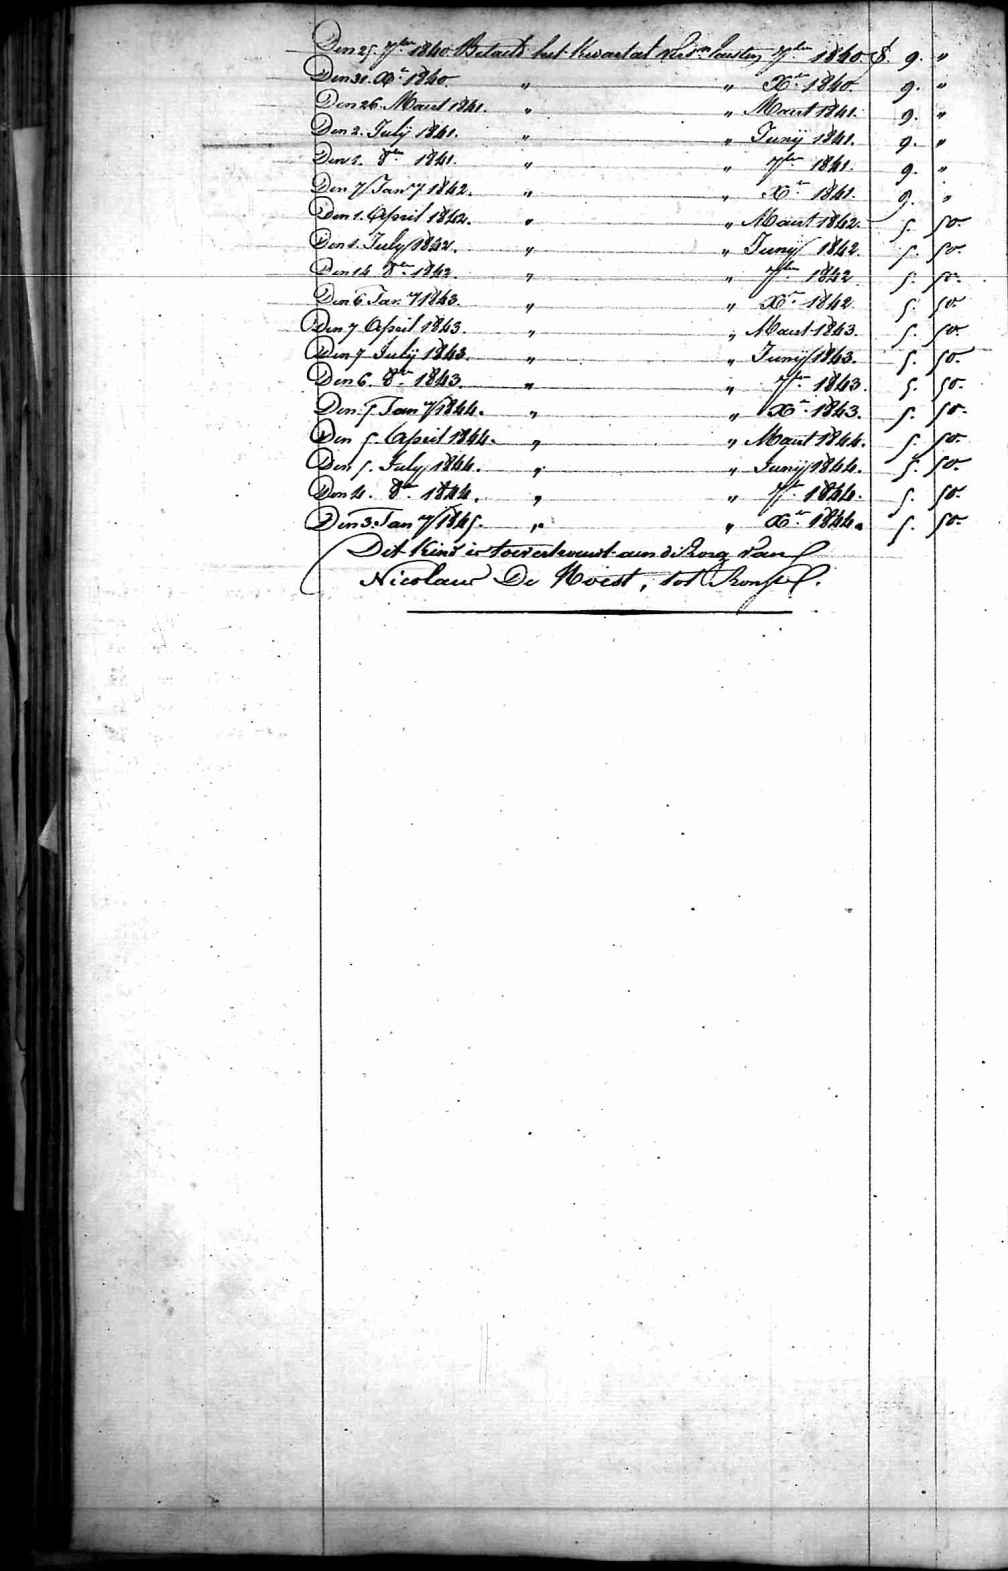 Den 25. 7ber 1840. Betaeld het kwartael verv.n lausten 7ber 1840. f. 9. "
Den 31. Xr 1840. " " Xr 1840. 9. "
Den 26. Maert 1841. " " Maert 1841. 9. "
Den 2. July 1841. " " Junij 1841. 9. "
Den 1. 8ber 1841. " " 7ber 1841. 9. "
Den 7 Jan.ry 1842. " " Xr 1841. 9. "
Den 1. April 1842. " " Maert 1842. 5. 50.
Den 1. July 1842. " " Junij 1842. 5. 50.
Den 14 8ber 1842. " " 7ber 1842 5. 50.
Den 6 Jan.ry 1843. " " Xr 1842 5. 50
Den 7 April 1843. " " Maert 1843. 5. 50.
Den 7 July 1843. " " Junij 1843. 5. 50
Den 6. 8ber 1843. " " 7ber 1843. 5. 50.
Den 5 Jan.ry 1844. " " Xr 1843. 5. 50.
Den 5. April 1844. " " Maert 1844. 5. 50.
Den 5. July 1844. " " Junij 1844. 5. 50.
Den 4. 8br 1844. " " 7br 1844. 5. 50.
Den 3. Jan.ry 1845. " " Xr 1844. 5. 50.
Dit kind is toevertrouwt aen de zorg van
Nicolaus De , tot